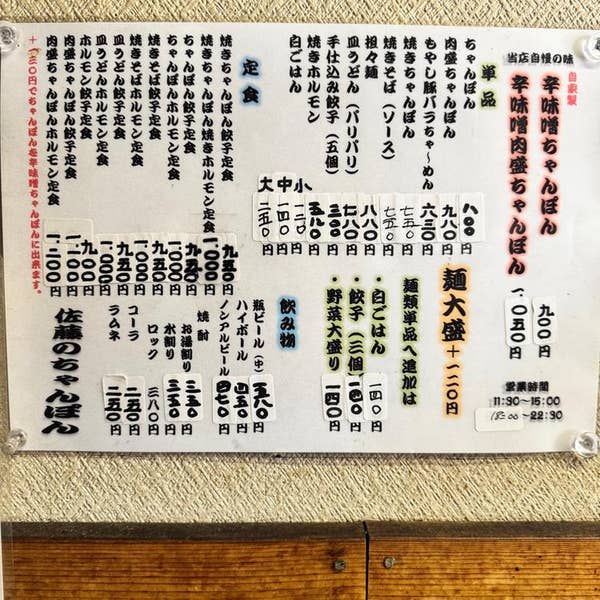 当店自慢の味
自家製
辛味噌ちゃんぽん 九〇〇円
辛味噌肉盛ちゃんぽん 一、〇五〇円
営業時間
11:30〜15:00
18:00〜22:30
単品
ちゃんぽん 八〇〇円
肉盛ちゃんぽん 九八〇円
もやし豚バラちゃ〜めん 六三〇円
焼きちゃんぽん 七五〇円
焼きそば（ソース） 七五〇円
担々麺 八八〇円
皿うどん（パリパリ） 七八〇円
手仕込み餃子（五個） 三〇〇円
焼きホルモン 五八〇円
白ごはん
小 一三〇円
中 一四〇円
大
麺大盛＋一二〇円
麺類単品へ追加は
・白ごはん 一四〇円
・餃子（三個） 一四〇円
・野菜大盛り 一四〇円
定食
焼きちゃんぽん餃子定食 九五〇円
焼きちゃんぽん焼きホルモン定食 一、〇〇〇円
ちゃんぽん餃子定食 九五〇円
ちゃんぽんホルモン定食 一、〇〇〇円
焼きそば餃子定食 九五〇円
焼きそばホルモン定食 一、〇〇〇円
皿うどん餃子定食 九五〇円
皿うどんホルモン定食 一、〇〇〇円
ホルモン定食 九〇〇円
肉盛ちゃんぽん餃子定食
肉盛ちゃんぽんホルモン定食 一、二〇〇円
＋一三〇円でちゃんぽんを辛味噌ちゃんぽんに出来ます。
飲み物
瓶ビール（中） 五八〇円
ハイボール 四五〇円
ノンアルビール 四七〇円
焼酎
お湯割り 三五〇円
水割り 三五〇円
ロック 三八〇円
コーラ 二五〇円
ラムネ 二五〇円
佐藤のちゃんぽん